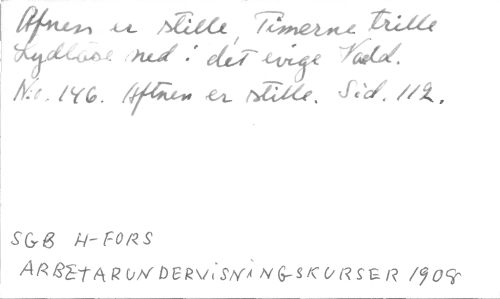 Aftnen er stille, Timerne trille
Lydløse ned i det evige Væld.
N:o. 146. Aftnen er stille. Sid. 112.
SGB H-FORS
ARBETARUNDERVISNINGSKURSER 1908